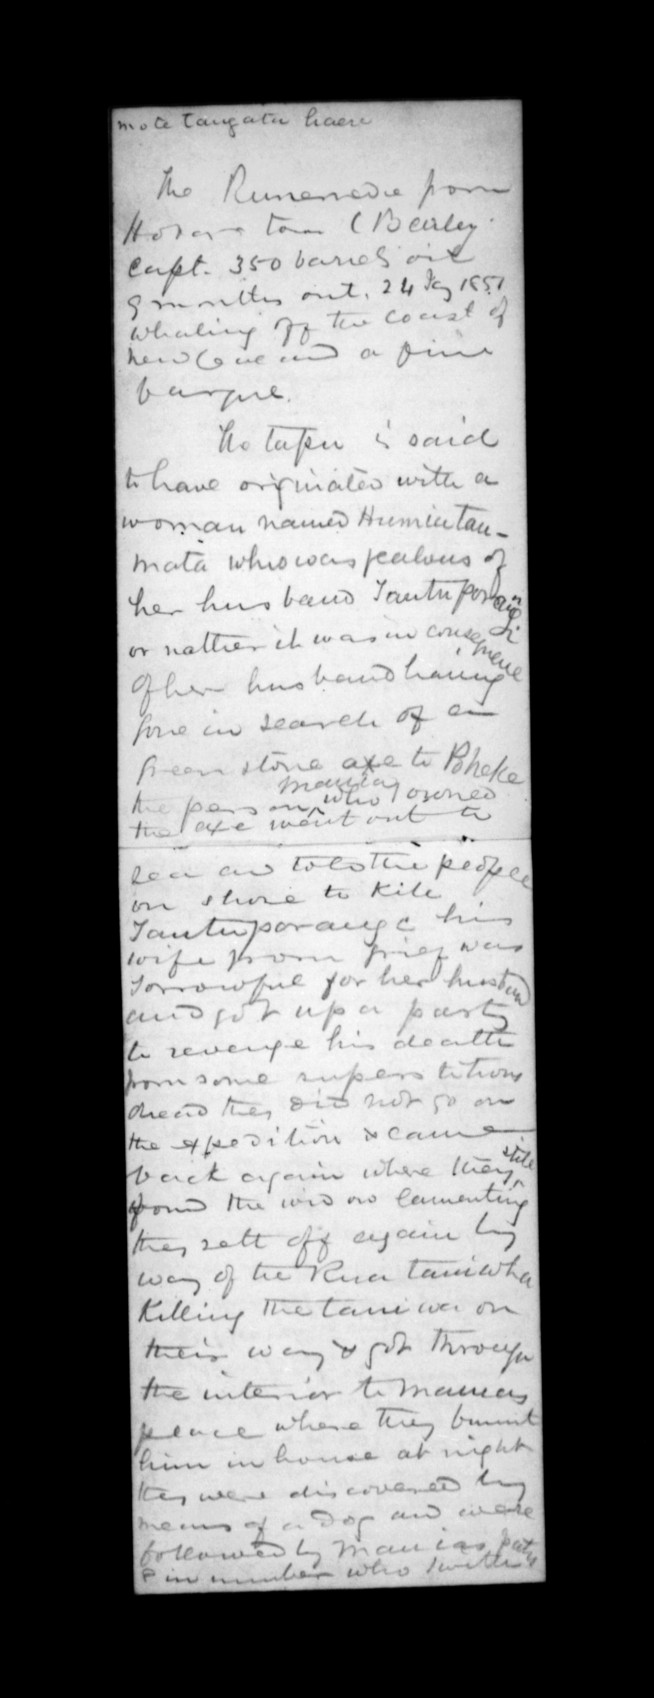 mo te tangata haere
The Runemede from
Hobart town (Bearley
Capt. 350 barrels oil
9 months out. 24 1851
whaling off the coast of
new Zealand a fine
barque.
The tapu is said
to have originated with a
woman named Humeatau-
mata who was jealous of
her husband Tautuporangi
or rather it was in consequence
of her husband having
gone in search of an
green stone axe to Poheke
the person Maniao who owned
the axe went out to
sea and told the people
on shore to kill
Tautuporangi his
wife from grief was
sorrowful for her husband
and got up a party
to revenge his death
from some superstitions
dread they did not go on
the expedition & came
back again where they still
found the widow lamenting
they sett off again by
way of the Rua taniwha
killing the taniwa on
their way & got through
the interior to Manias
place where they burnt
him in house at night
they were discovered by
means of a dog and were
followed by Manias party
8 in number who